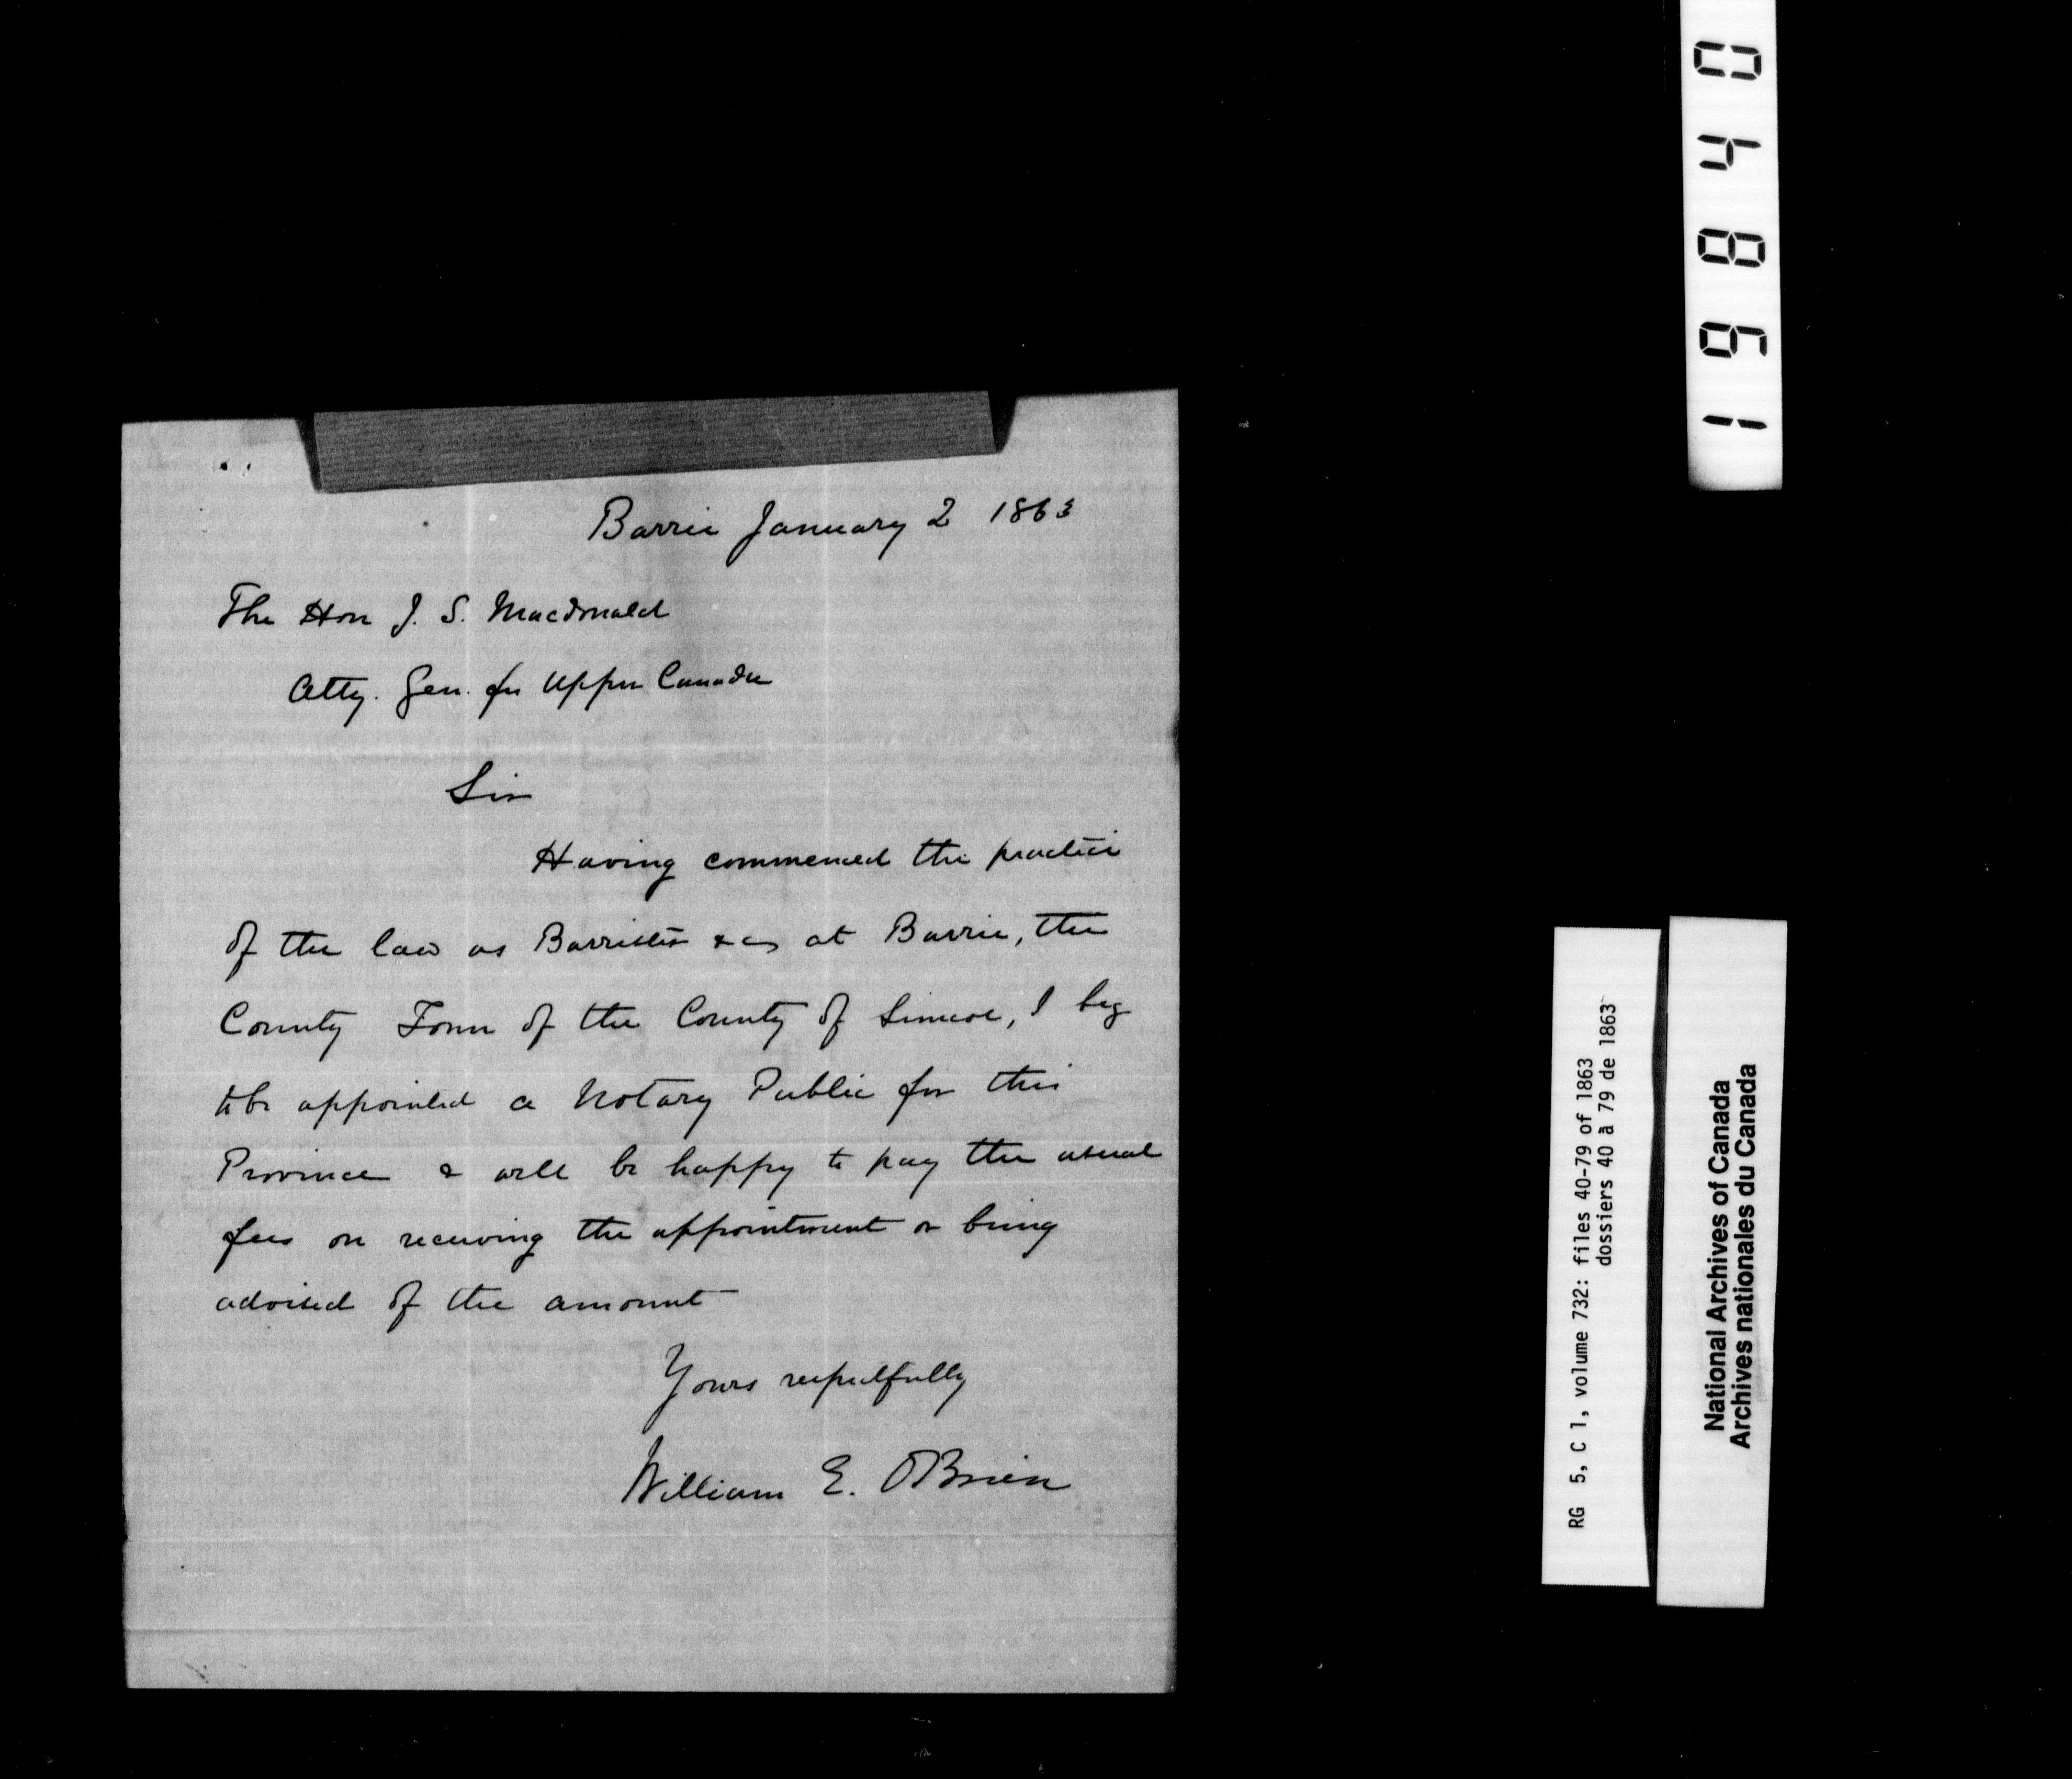 Barrie January 2 1863
The Hon J. S. Macdonald
Atty. Gen. for Upper Canada
Sir
Having commenced the practice
of the law as Barrister &c at Barrie, the
County Town of the County of Simcoe, I beg
to be appointed a Notary Public for this
Province & will be happy to pay the usual
fees on receiving the appointment or being
advised of the amount
Yours respectfully
William E. O'Brien
16840
RG 5, C 1, volume 732: files 40-79 of 1863
dossiers 40 à 79 de 1863
National Archives of Canada
Archives nationales du Canada